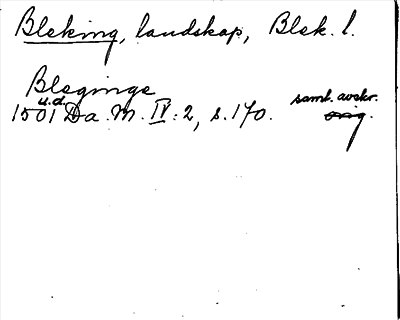 Bleking, landskap, Blek. l.
Bleginge
u.d.
samt. avskr.
1501 Da. M. IV: 2, s. 170. orig.